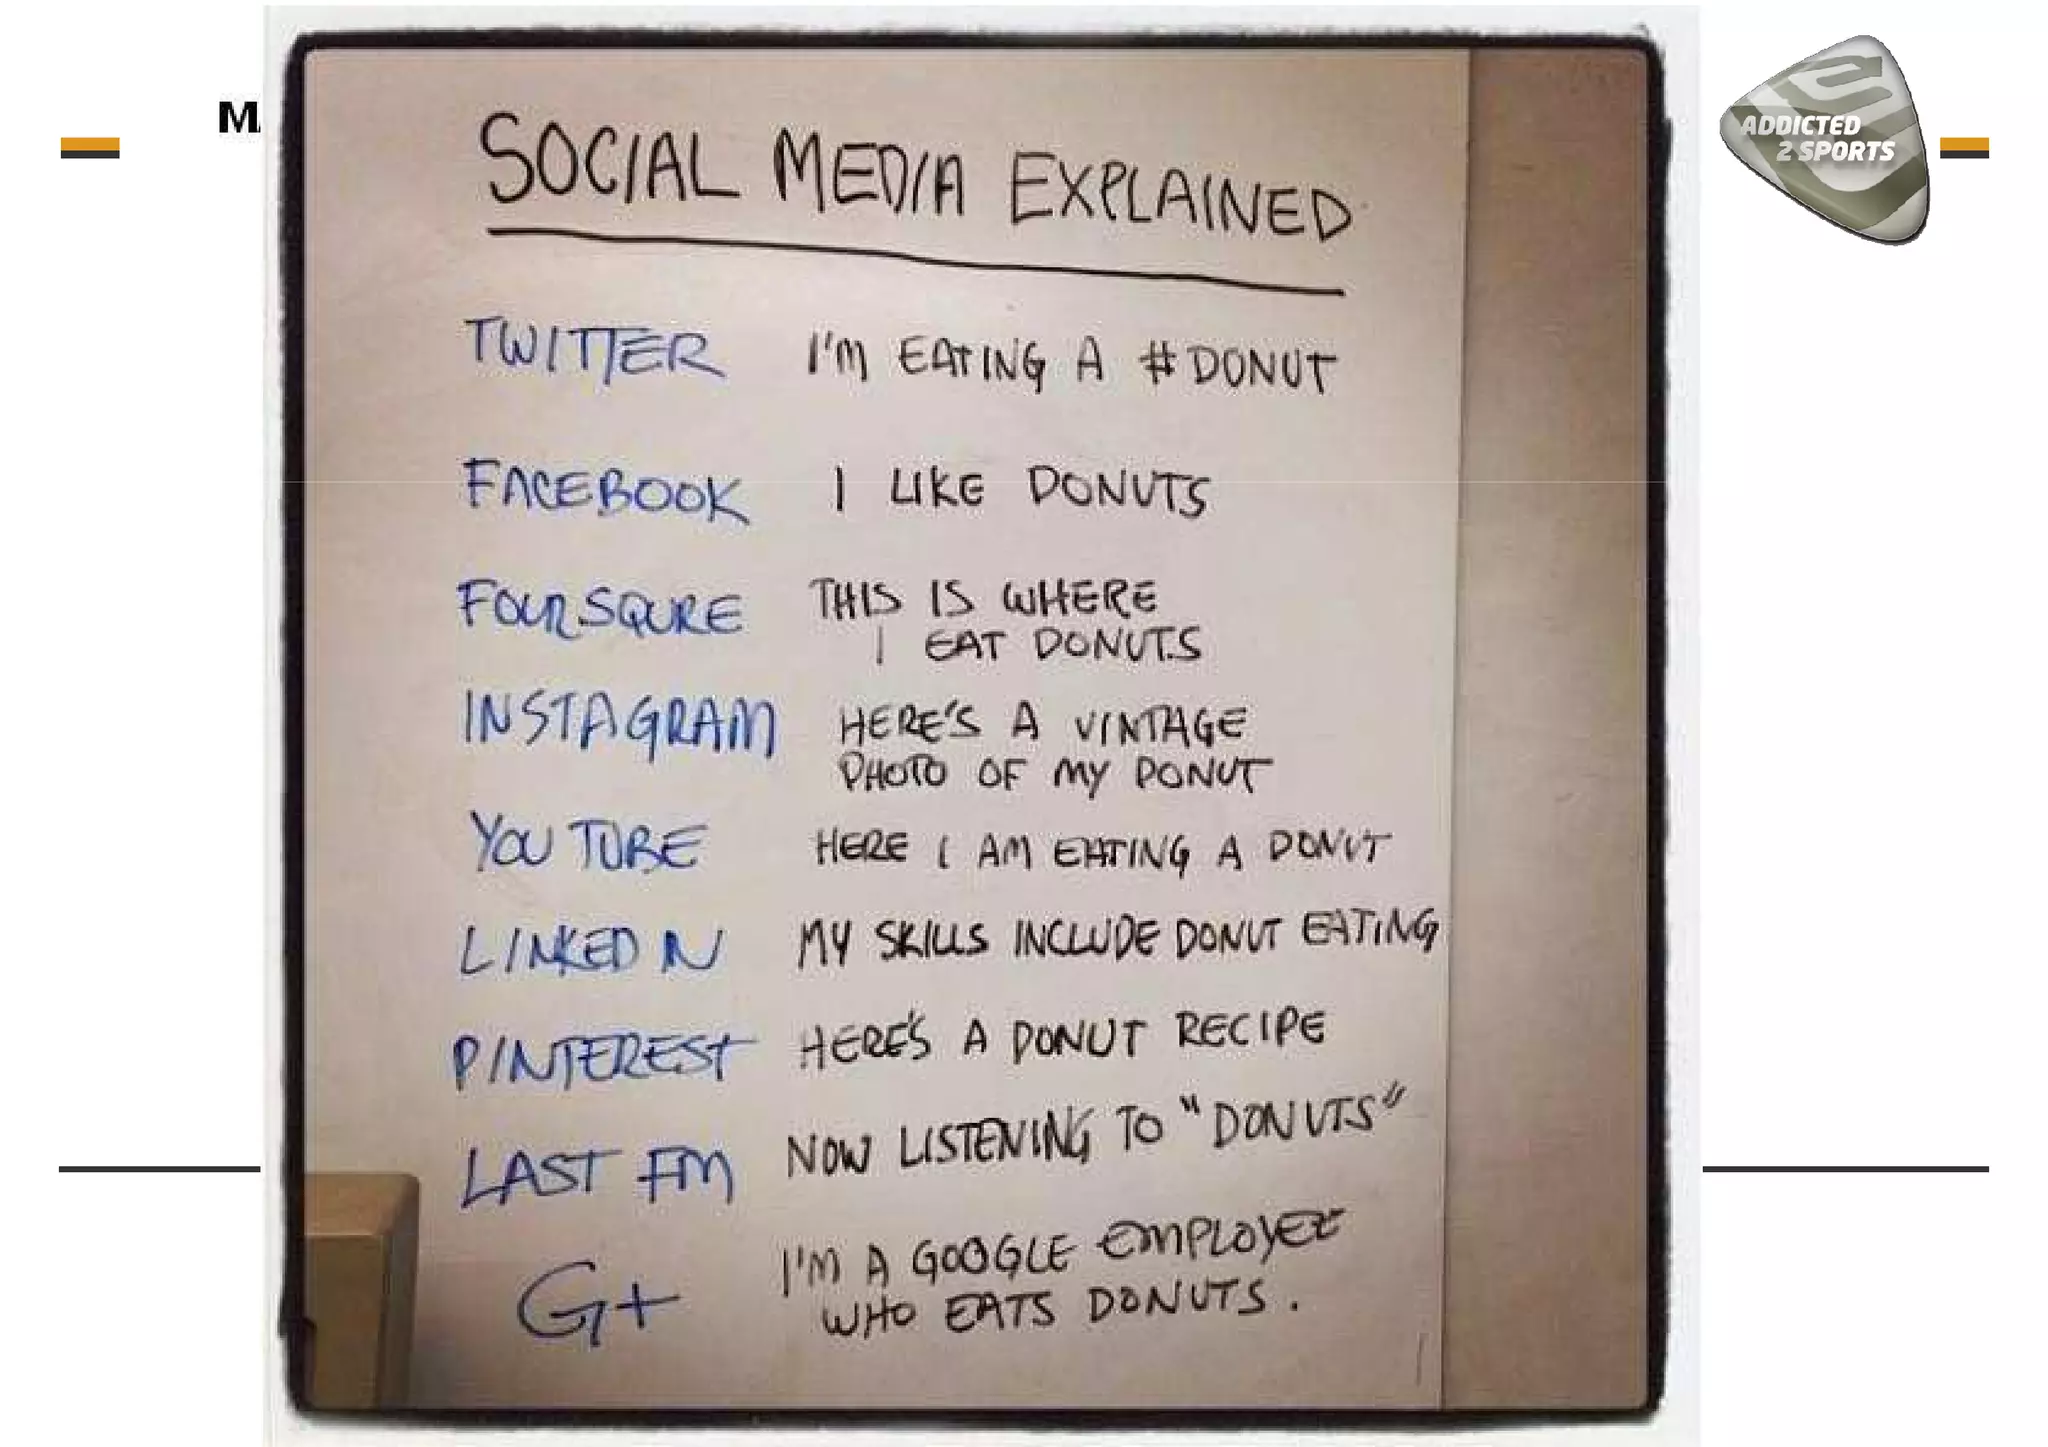 M
ADDICTED
2 SPORTS
SOCIAL MEDIA EXPLAINED
TWITTER I'M EATING A #DONUT
FACEBOOK I LIKE DONUTS
FOURSQURE THIS IS WHERE
I EAT DONUTS
INSTAGRAM HERE'S A VINTAGE
PHOTO OF MY DONUT
YOU TUBE HERE I AM EATING A DONUT
LINKED IN MY SKILLS INCLUDE DONUT EATING
PINTEREST HERE'S A DONUT RECIPE
LAST FM NOW LISTENING TO "DONUTS"
G+ I'M A GOOGLE EMPLOYEE
WHO EATS DONUTS.